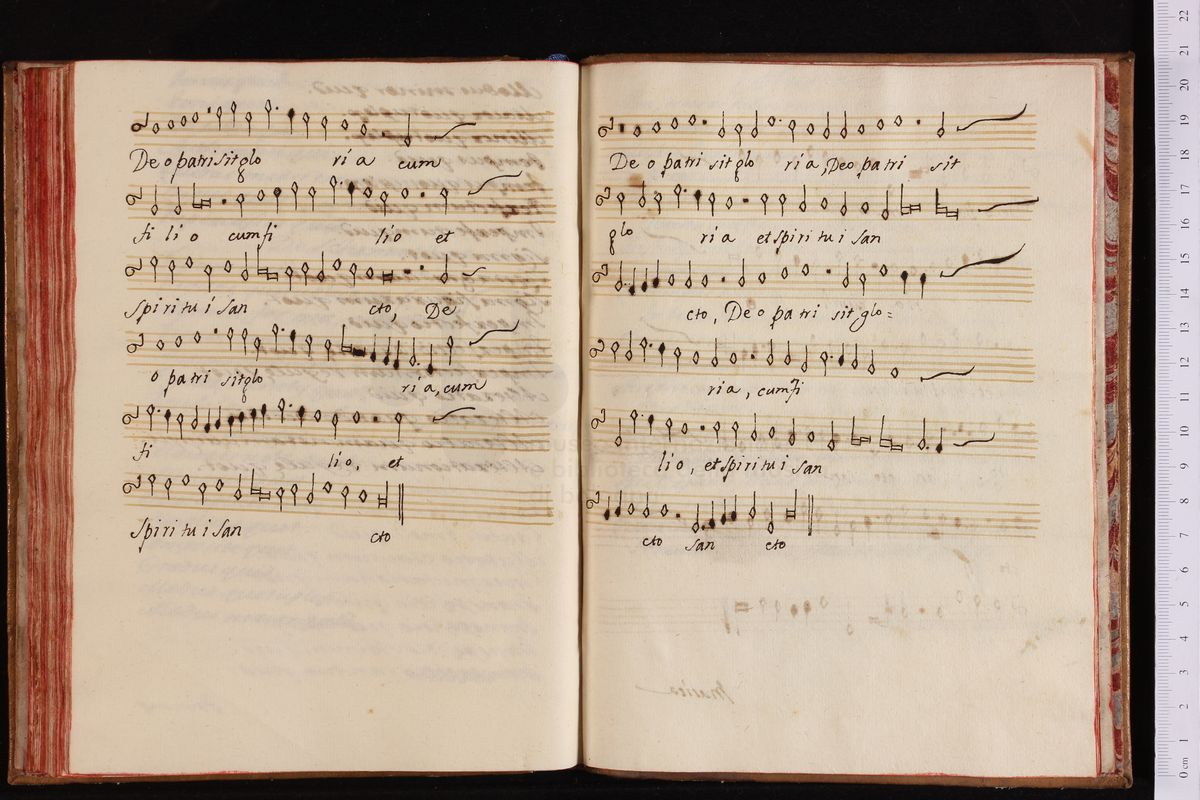 De o patri sit glo ri a cum
fi li o cum fi li o et
Spi ri tu i San cto, De
o patri sit glo ri a, cum
fi li o, et
Spi ri tu i San cto
De o patri sit glo ri a, Deo patri sit
glo ri a et Spi ri tu i San
cto, De o pa tri sit glo=
ri a, cum fi
li o, et Spi ri tu i San
cto San cto
22
21
20
19
18
17
16
15
14
13
12
11
10
9
8
7
6
5
4
3
2
1
0 cm